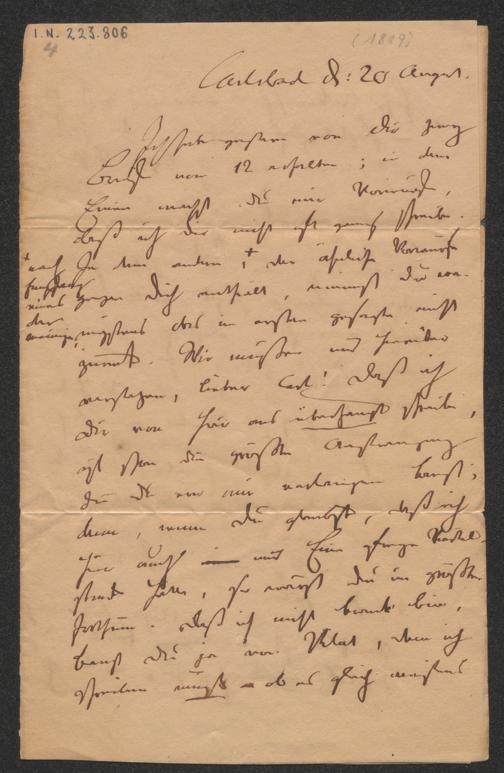 I.N. 223.806
4
(1889)
Carlsbad d: 20 August.
Ich habe gestern von Dir zwey
Briefe vom 12 erhalten; in dem
Einen machst Du mir Vorwürfe,
daß ich Dir nicht oft genug schreibe.
In dem andern, + der ähnliche Vorwürfe
+ nach
Empfang
eines
der
meinigen
gegen Dich enthielt, nimmst Du
das im ersten gesagte nicht
zurück. Wir müssen uns hierüber
verstehen, lieber Carl! Daß ich
Dir von hier aus überhaupt schreibe,
ist schon die größte Anstrengung
die Du von mir verlangen kannst;
denn, wenn Du glaubst, daß ich
hier auch — nur Eine freye Viertel-
stunde habe, so wärest Du im größten
Irrthum. Daß ich nicht krank bin,
kannst Du ja von, dem ich
schreiben muß - ob es gleich meistens